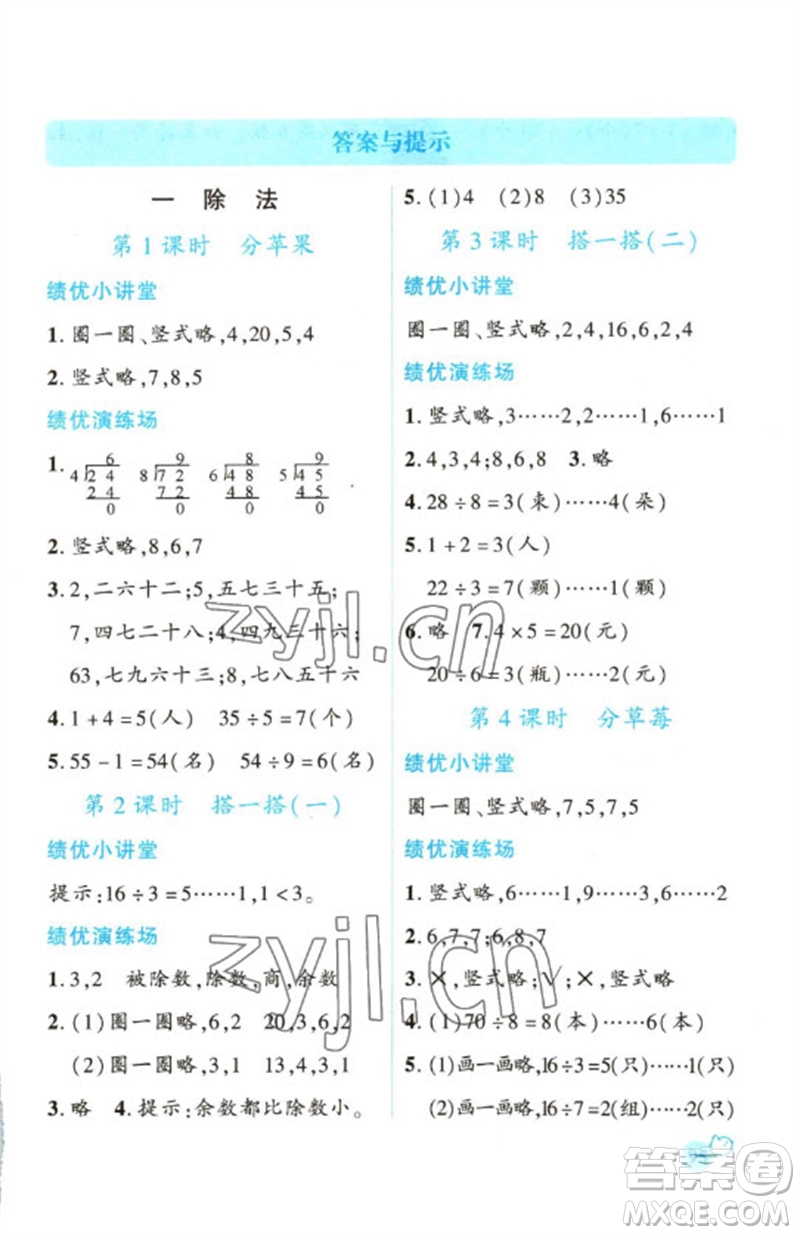 答案与提示
一 除法
第1课时 分苹果
绩优小讲堂
1. 圈一圈、竖式略,4,20,5,4
2. 竖式略,7,8,5
绩优演练场
1. 
6
4)2 4
2 4
0
9
8)7 2
7 2
0
8
6)4 8
4 8
0
9
5)4 5
4 5
0
2. 竖式略,8,6,7
3. 2,二六十二;5,五七三十五;
7,四七二十八;4,四九三十六;
63,七九六十三;9,五九四十五
4. 1+4=5(人) 35÷5=7(个)
5. 55-1=54(名) 54÷9=6(名)
第2课时 搭一搭(一)
绩优小讲堂
提示:16÷3=5……1,1<3。
绩优演练场
1. 3,2 被除数,除数,商,余数
2. (1)圈一圈略,6,2 20,3,6,2
(2)圈一圈略,3,1 13,4,3,1
3. 略 4. 提示:余数都比除数小。
5. (1)4 (2)8 (3)35
第3课时 搭一搭(二)
绩优小讲堂
圈一圈、竖式略,2,4,16,6,2,4
绩优演练场
1. 竖式略,3……2,2……1,6……1
2. 4,3,4;8,6,8 3. 略
4. 28÷8=3(束)……4(朵)
5. 1+2=3(人)
22÷3=7(颗)……1(颗)
6. 略 7. 4×5=20(元)
20÷6=3(瓶)……2(元)
第4课时 分草莓
绩优小讲堂
圈一圈、竖式略,7,5,7,5
绩优演练场
1. 竖式略,6……1,9……3,6……2
2. 6,7,7;6,8,7
3. ×,竖式略;√;×,竖式略
4. (1)70÷8=8(本)……6(本)
5. (1)画一画略,16÷3=5(只)……1(只)
(2)画一画略,16÷7=2(组)……2(只)
zyjl.cn
zyjl.cn
答案圈
MXQE.COM